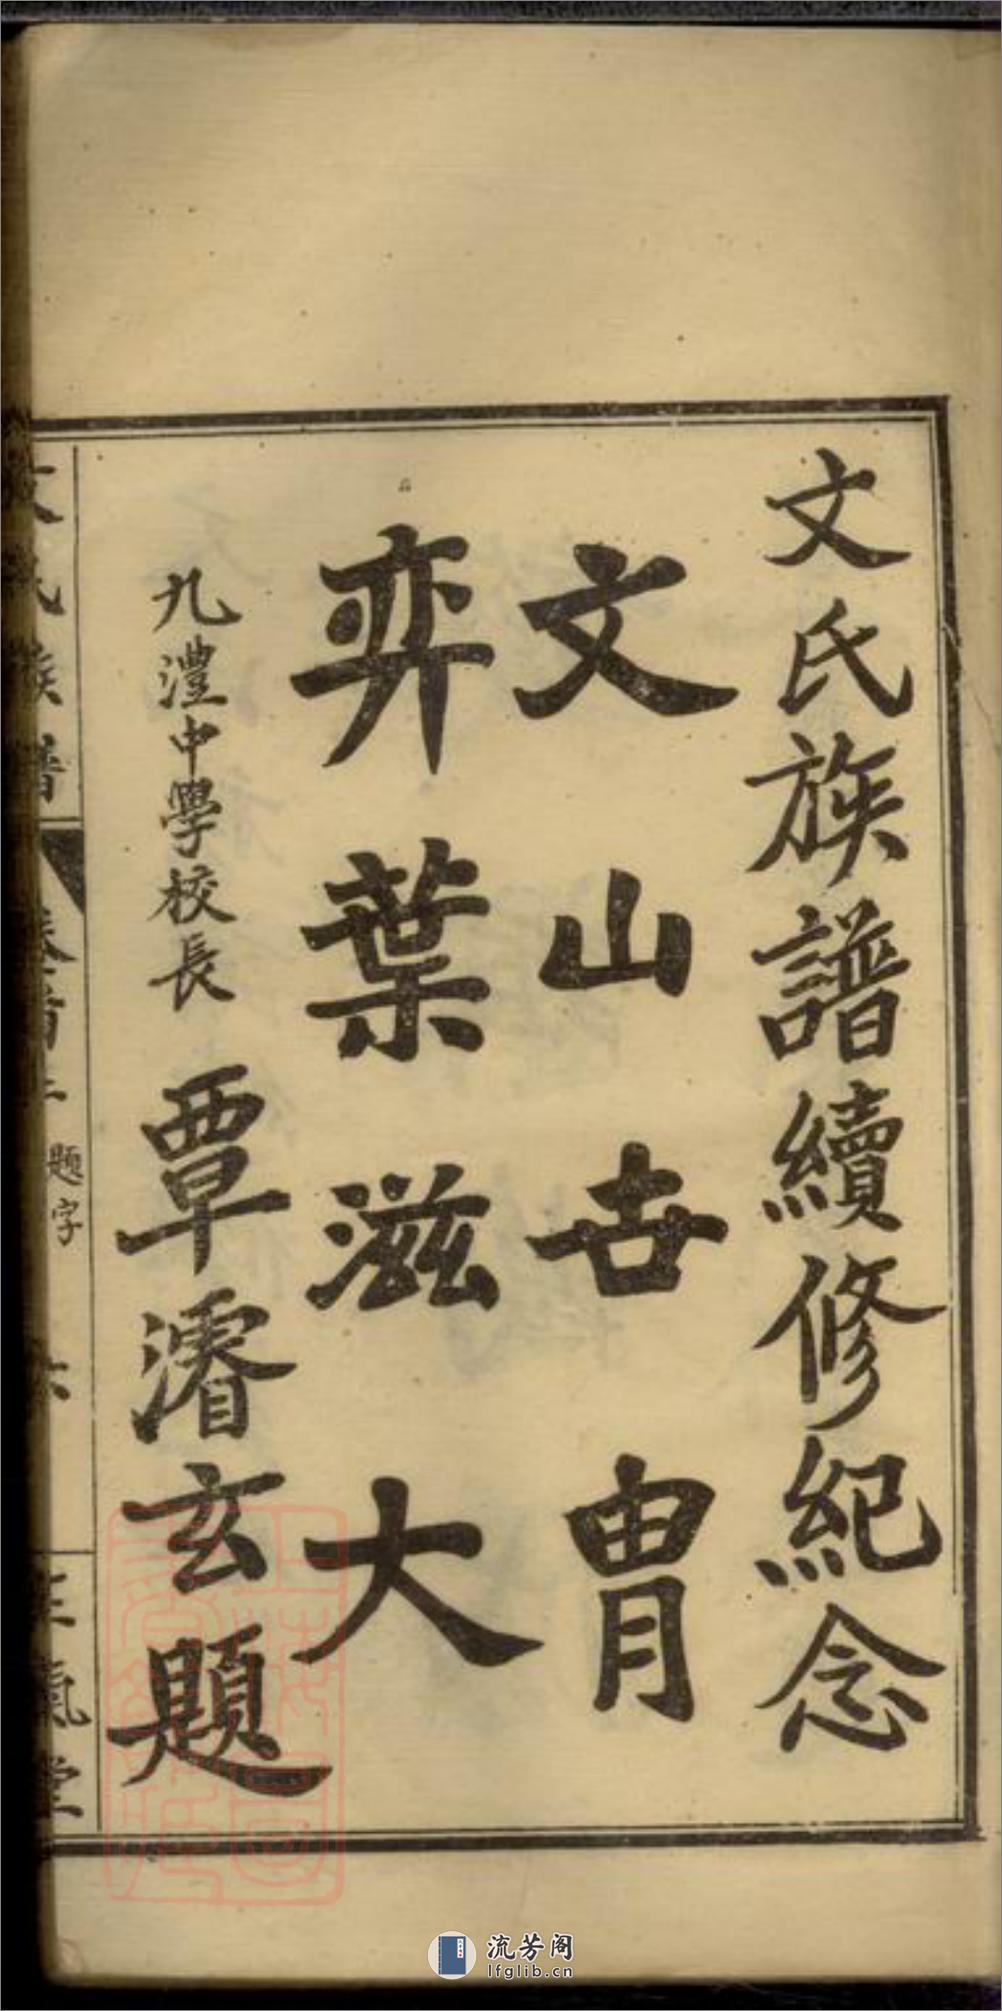 文氏族譜續修紀念
文山世胄
弈葉滋大
九澧中學校長 覃濬玄題
文氏族譜
卷首上 題字
六
正氣堂
流芳阁
lfglib.cn